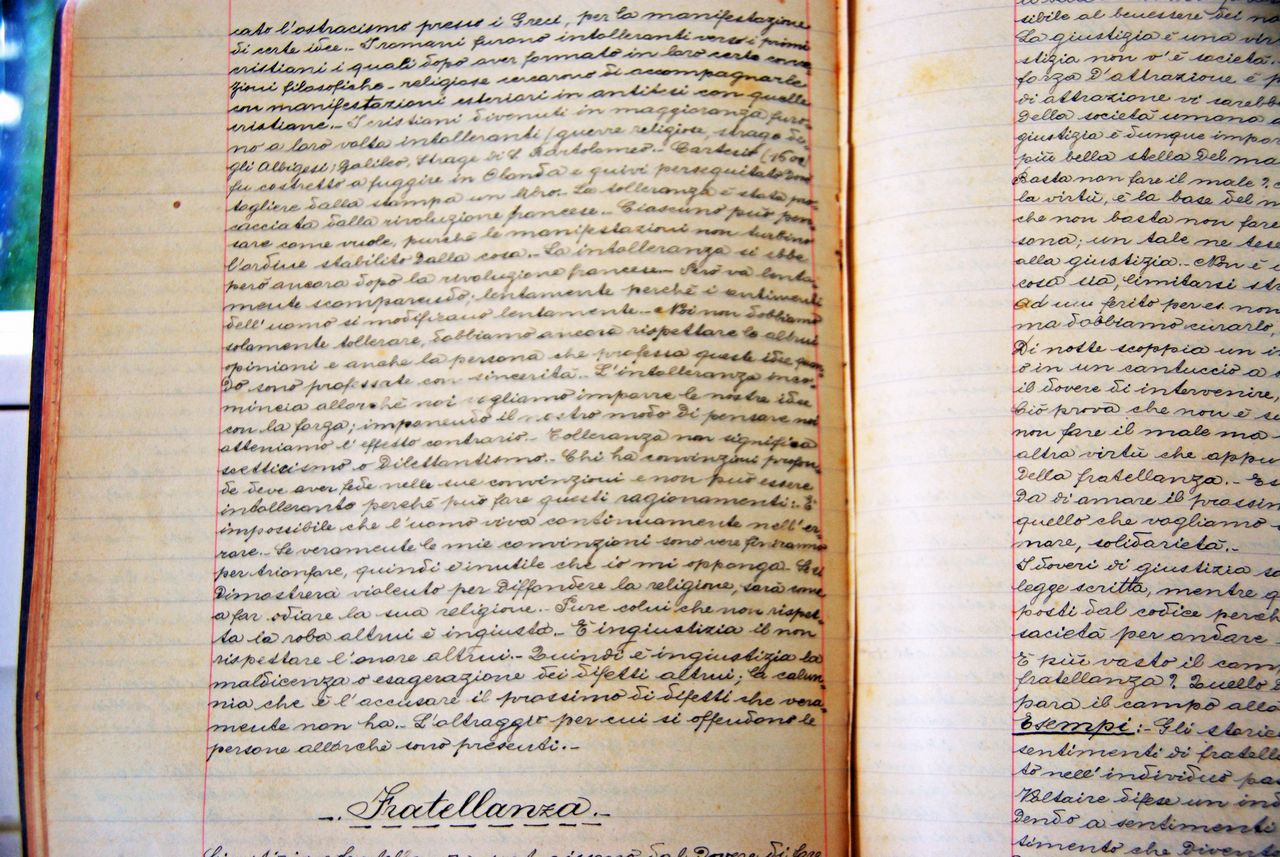 cato l'ostracismo presso i Greci, per la manifestazione
di certe idee.- I romani furono intolleranti verso i primi
cristiani i quali dopo aver formato in loro certe convin-
zioni filosofiche-religiose cercarono di accompagnarle
con manifestazioni esteriori in antitesi con quelle
cristiane.- I cristiani divenuti in maggioranza furo-
no a loro volta intolleranti (guerre religiose, strage de-
gli Albigesi; Galileo, strage di S. Bartolomeo.- Cartesio
fu costretto a fuggire in Olanda e quivi perseguitato
togliere dalla stampa un libro.- La tolleranza è stata pro-
cacciata dalla rivoluzione francese.- Ciascuno può pen-
sare come vuole, purché le manifestazioni non turbino
l'ordine stabilito dalla cosa.- La intolleranza si ebbe
però ancora dopo la rivoluzione francese.- Però va lenta-
mente scomparendo; lentamente perché i sentimenti
dell'uomo si modificano lentamente.- Noi non dobbiamo
solamente tollerare, dobbiamo ancora rispettare le altrui
opinioni e anche la persona che professa queste idee quan-
do sono professate con sincerità.- L'intolleranza inco-
mincia allorché noi vogliamo imporre le nostre idee
con la forza; imponendo il nostro modo di pensare noi
otteniamo l'effetto contrario.- Tolleranza non significa
scetticismo o Dilettantismo.- Chi ha convinzioni profon-
de deve aver fede nelle sue convinzioni e non può essere
intollerante perché può fare questi ragionamenti:- È
impossibile che l'uomo viva continuamente nell'er-
rore.- Se veramente le mie convinzioni sono vere finiranno
per trionfare, quindi è inutile che io mi opponga.- Se si
Dimostrerà violento per Diffondere la religione, sarà come
a far odiare la sua religione.- Pure colui che non rispet-
ta la roba altrui è ingiusto.- È ingiustizia il non
rispettare l'onore altrui.- Quindi è ingiustizia la
maldicenza o esagerazione dei difetti altrui; la calun-
nia che è l'accusare il prossimo di difetti che vera-
mente non ha.- L'oltraggio per cui si offendono le
persone allorché sono presenti.-
-. Fratellanza.-
sibile al benessere dei
La giustizia è una vir
stizia non v'è società.
forza D'attrazione, è
di attrazione vi sarebb
Della società umana
giustizia è dunque impor
più bella stella Del ma
Basta non fare il male?
la virtù, è la base del
che non basta non fare
sona; un tale ne tes
alla giustizia.- Non è
cosa sia, limitarsi
ad un ferito per es. non
ma dobbiamo curarlo,
Di notte scoppia un i
o in un cantuccio a
il dovere di intervenire,
Ciò prova che non è
non fare il male ma
altra virtù che appu
Della fratellanza.-
Da di amare il prossim
quello che vogliamo
mare, solidarietà.-
I doveri di giustizia
legge scritta, mentre
posti dal codice perch
società per andare
È più vasto il cam
fratellanza? Quello
para il campo alla
Esempi:- Gli storic
sentimenti di fratell
to nell'individuo
Voltaire difese un in
Dendo a sentimenti
timento che Divent